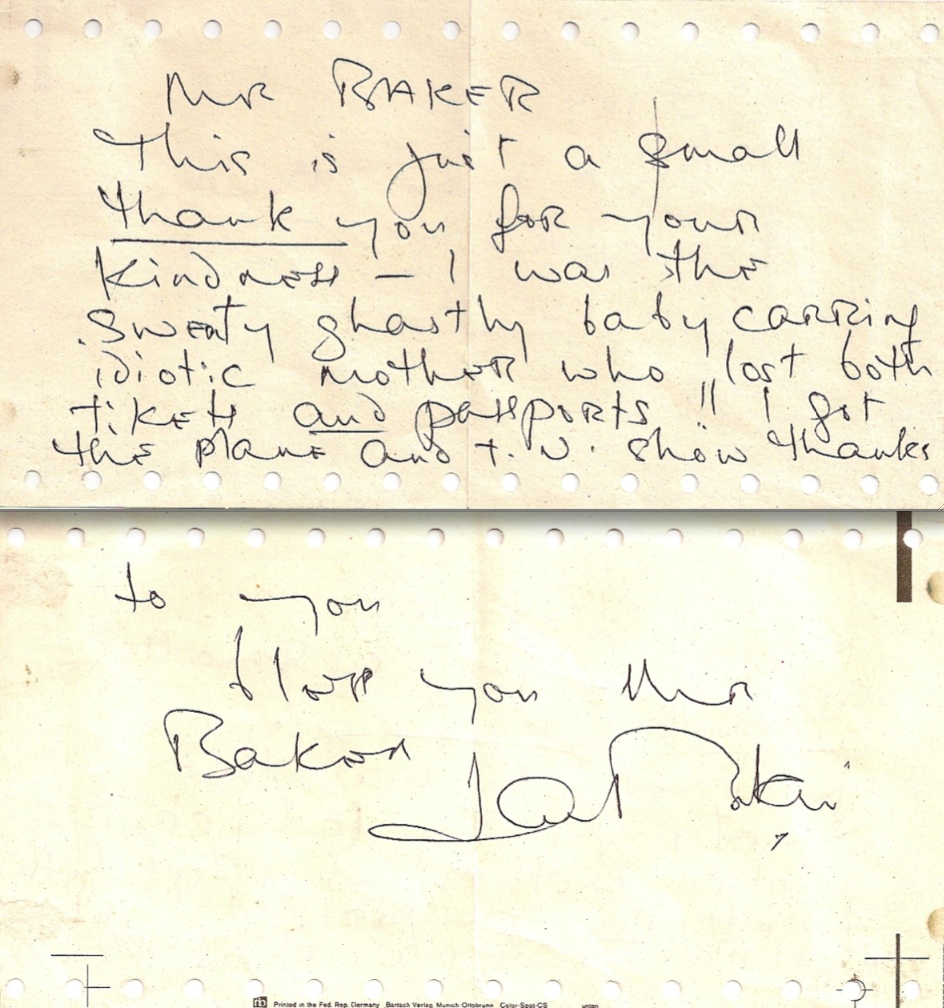 Mr BAKER
This is just a small
thank you for your
kindness – I was the
sweaty ghastly baby carring
idiotic mother who lost both
tikets and passports !! I got
the plane and t.v. show thanks
to you
bless you Mr
Baker
Printed in the Fed. Rep. Germany Bartsch Verlag, Munich-Ottobrunn Color-Spot-CS